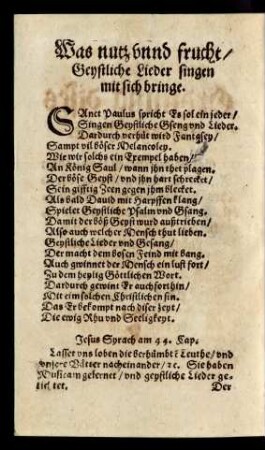 Was nutz vnnd frucht/
Geystliche Lieder singen
mit sich bringe.
SAnct Paulus spricht Es sol ein jeder/
Singen Geystliche Gseng vnd Lieder.
Dardurch verhüt wird Fantasey/
Sampt vil böser Melancoley.
Wie wir solchs ein Exempel haben/
An König Saul/ wann jhn thet plagen.
Der böse Geyst/ vnd jhn hart schrecket/
Sein gifftig Zeen gegen jhm blecket.
Als bald Dauid mit Harpffen klang/
Spielet Geystliche Psalm vnd Gsang.
Damit der böß Geyst wurd außtrieben/
Also auch welcher Mensch thut lieben.
Geystliche Lieder vnd Gesang/
Der macht dem bosen Feind mit bang.
Auch gewinnet der Mensch ein lust fort/
Zu dem heylig Göttlichen Wort.
Dardurch gewint Er auch forthin/
Mit eim solchen Christlichen sin.
Das Er bekompt nach diser zeyt/
Die ewig Rhu vnd Seeligkeyt.
Jesus Syrach am 44. Kap.
Lasset vns loben die berhümbtē Leuthe/ vnd
vnsere Vätter nacheinander/ ꝛc. Sie haben
Musicam gelernet/ vnd geystliche Lieder ge-
tichtet. Der